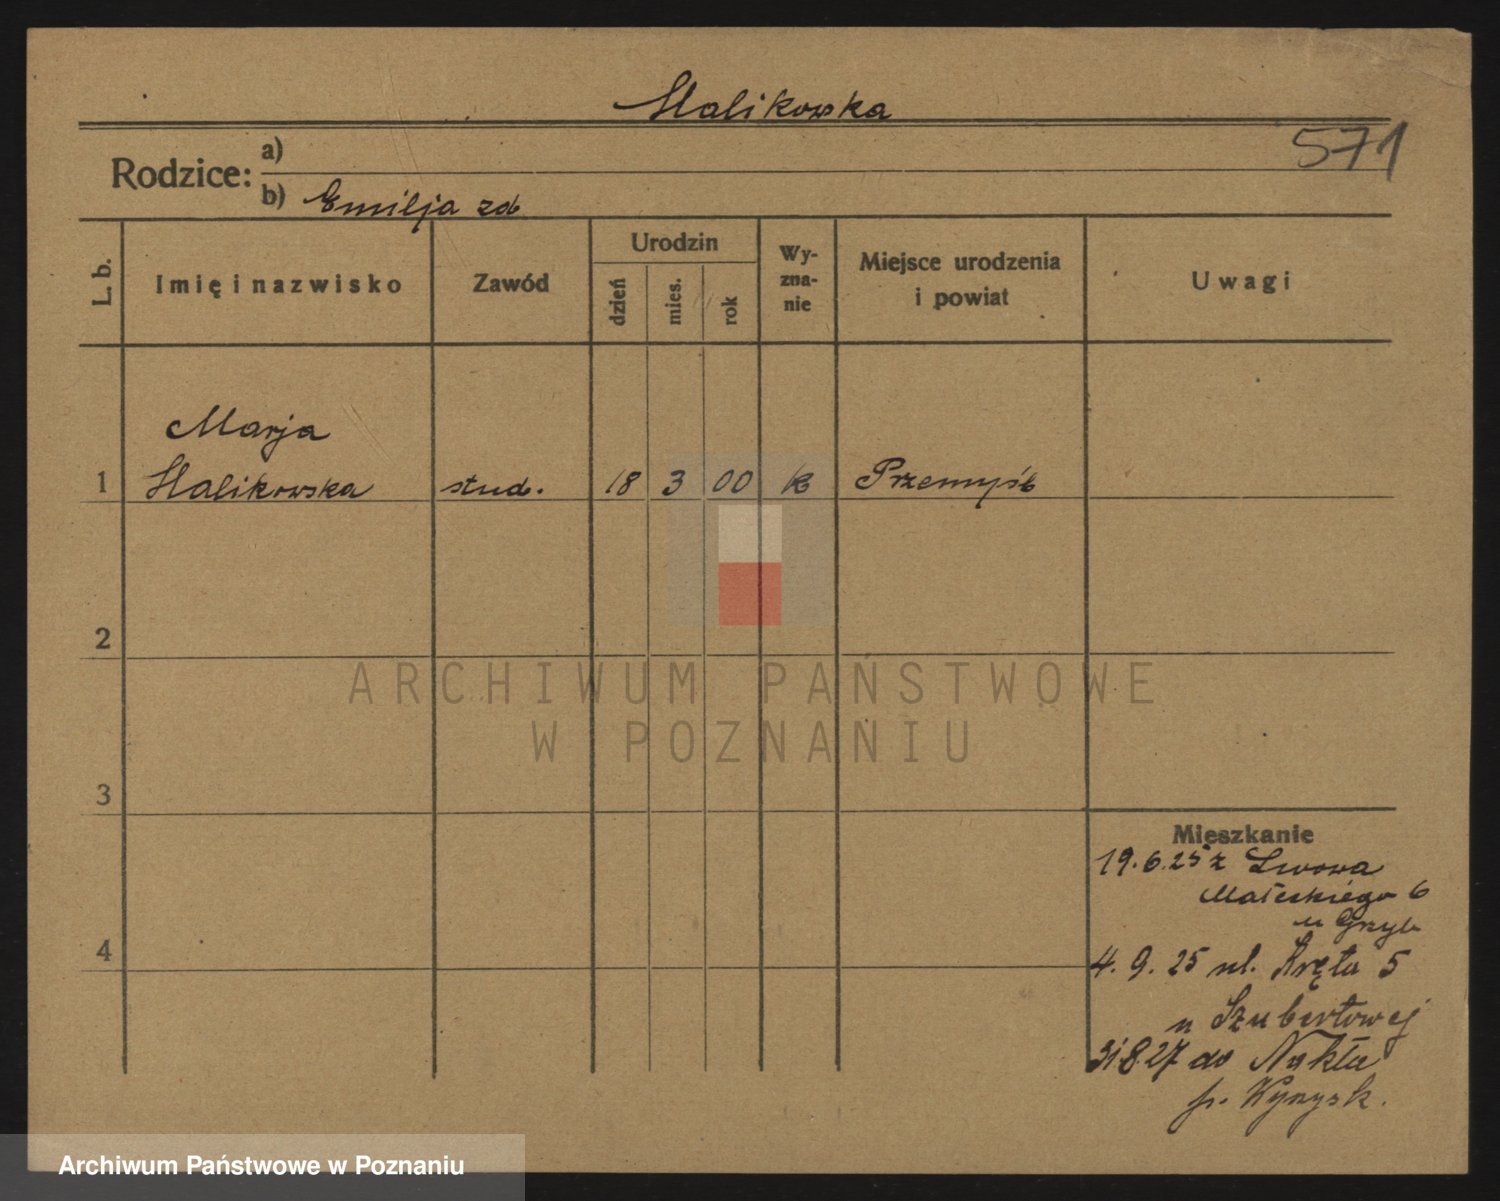 Halikowska
571
Rodzice:
a)
b) Emilja zd
L. b.
Imię i nazwisko
Zawód
Urodzin
dzień
mies.
rok
Wy-
zna-
nie
Miejsce urodzenia
i powiat
Uwagi
Marja
1 Halikowska stud. 18 3 00 k Przemyśl
2
ARCHIWUM PAŃSTWOWE
W POZNANIU
3
4
Mieszkanie
19.6.25 z Lwowa
Małeckiego 6
u
4. 9. 25 ul. Kręta 5
u Szubertowej
31.8.27 do Nakła
p. Wyrzysk.
Archiwum Państwowe w Poznaniu